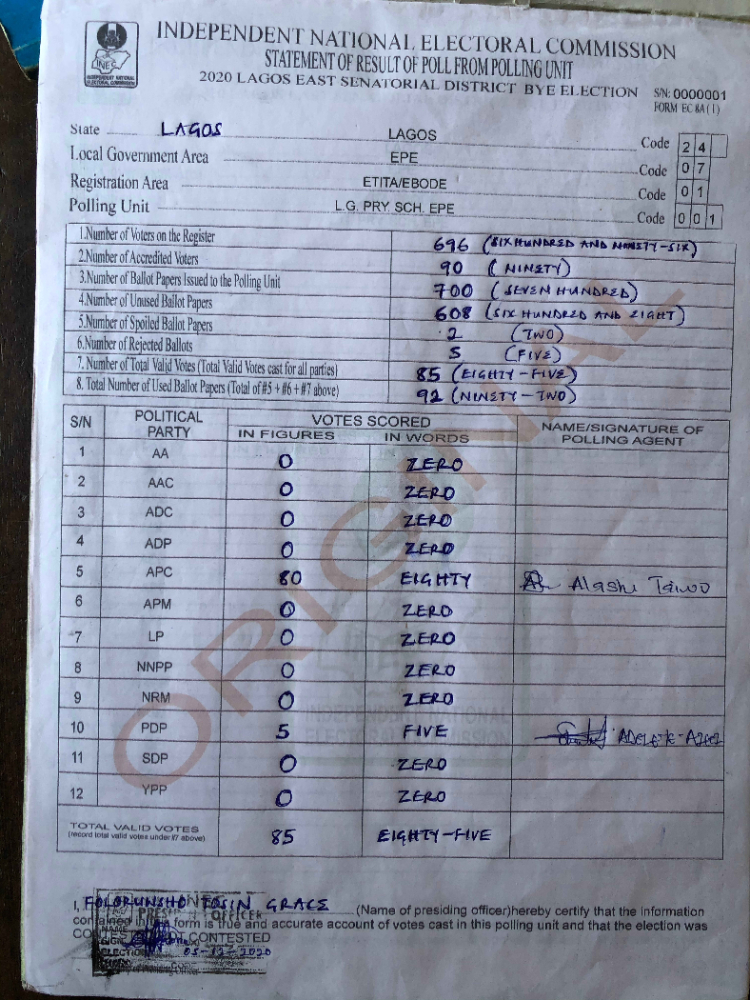 INDEPENDENT NATIONAL ELECTORAL COMMISSION
STATEMENT OF RESULT OF POLL FROM POLLING UNIT
2020 LAGOS EAST SENATORIAL DISTRICT BYE ELECTION S/N: 0000001
FORM EC 8A (I)
State LAGOS LAGOS Code 2 4
Local Government Area EPE Code 0 7
Registration Area ETITA/EBODE Code 0 1
Polling Unit L.G. PRY SCH. EPE Code 0 0 1
1.Number of Voters on the Register 696 (SIX HUNDRED AND NINETY-SIX)
2.Number of Accredited Voters 90 (NINETY)
3.Number of Ballot Papers Issued to the Polling Unit 700 (SEVEN HUNDRED)
4.Number of Unused Ballot Papers 608 (SIX HUNDRED AND EIGHT)
5.Number of Spoiled Ballot Papers 2 (TWO)
6.Number of Rejected Ballots 5 (FIVE)
7. Number of Total Valid Votes (Total Valid Votes cast for all parties) 85 (EIGHTY-FIVE)
8. Total Number of Used Ballot Papers (Total of #5 + #6 + #7 above) 92 (NINETY-TWO)
S/N POLITICAL PARTY VOTES SCORED NAME/SIGNATURE OF POLLING AGENT
IN FIGURES IN WORDS
1 AA 0 ZERO
2 AAC 0 ZERO
3 ADC 0 ZERO
4 ADP 0 ZERO
5 APC 80 EIGHTY Alashe Taiwo
6 APM 0 ZERO
7 LP 0 ZERO
8 NNPP 0 ZERO
9 NRM 0 ZERO
10 PDP 5 FIVE
11 SDP 0 ZERO
12 YPP 0 ZERO
TOTAL VALID VOTES 85 EIGHTY-FIVE
(record total valid votes under #7 above)
ORIGINAL
I, FOLORUNSHO TOSIN GRACE (Name of presiding officer)hereby certify that the information
contained in this form is true and accurate account of votes cast in this polling unit and that the election was
CONTESTED/NOT CONTESTED
05-12-2020